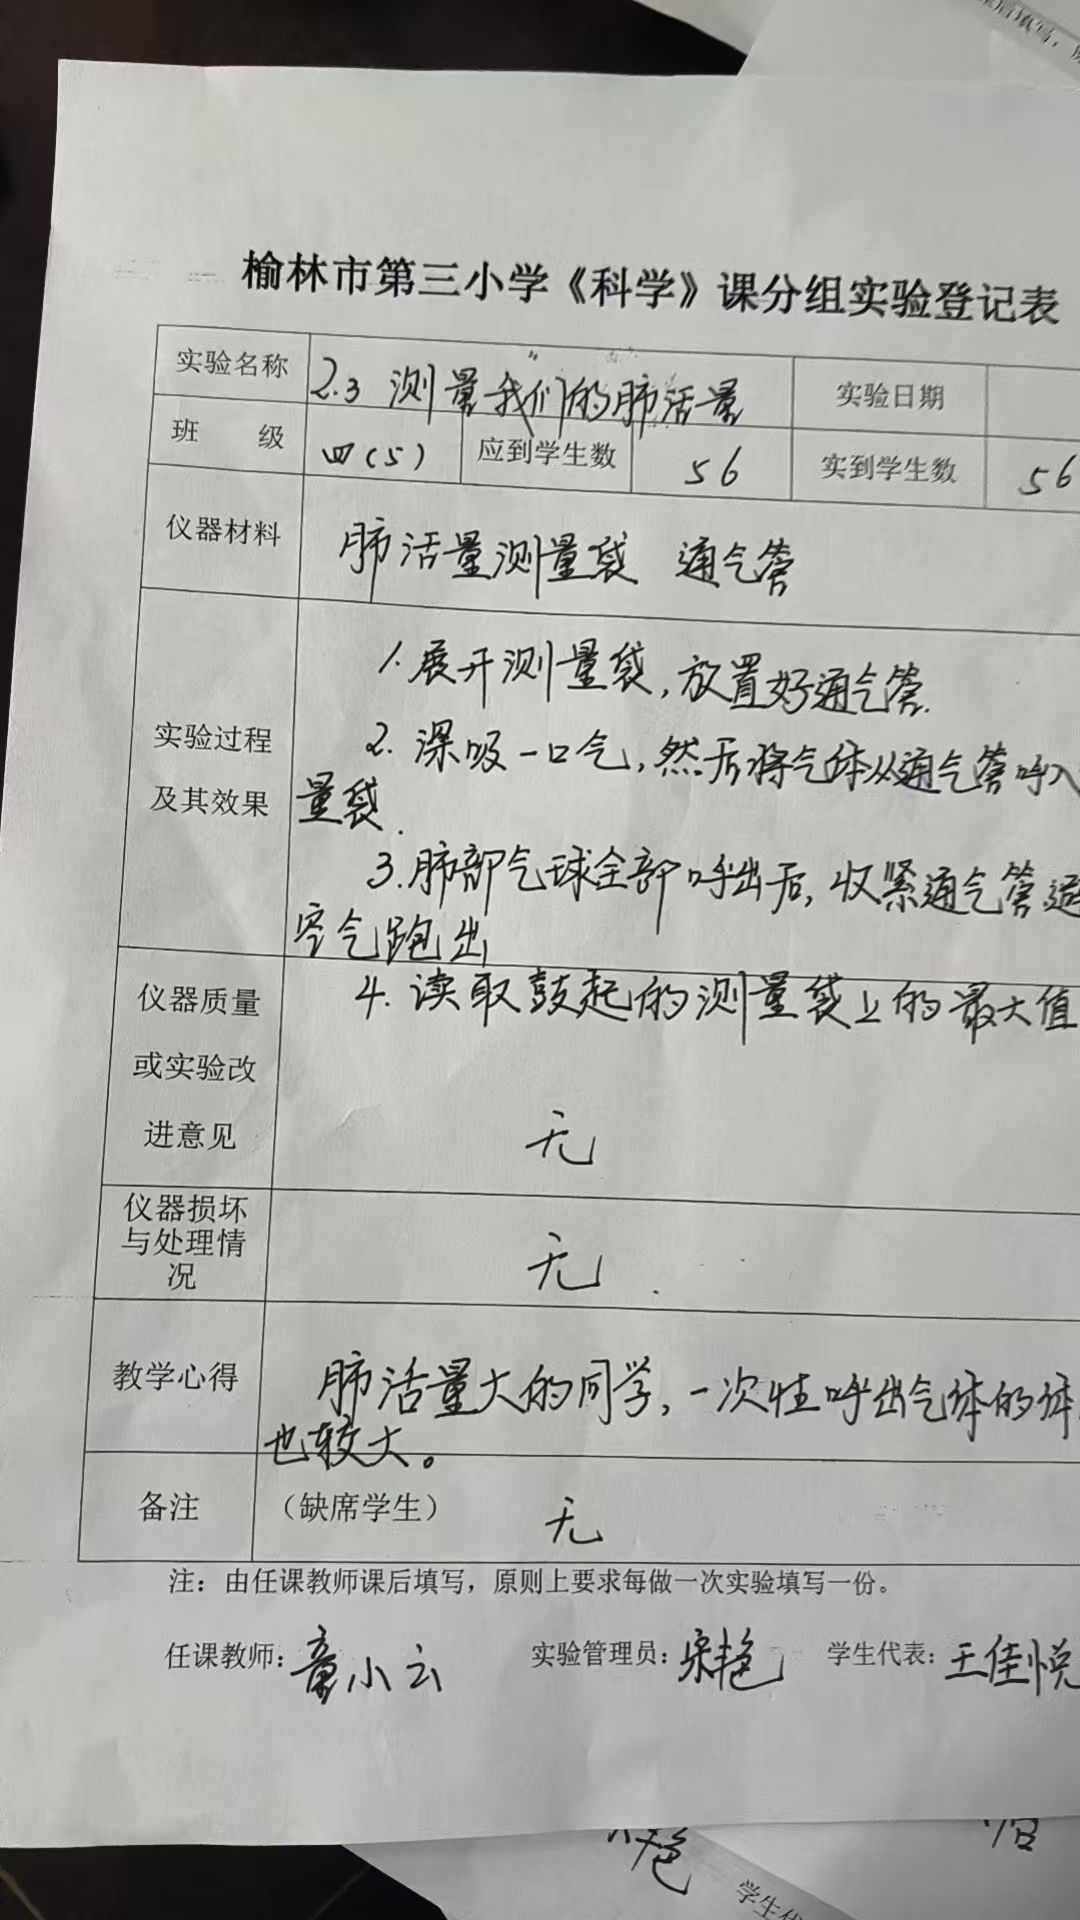 后填写，
榆林市第三小学《科学》课分组实验登记表
实验名称 2.3 测量我们的肺活量 实验日期
班 级 四(5) 应到学生数 56 实到学生数 56
仪器材料 肺活量测量袋 通气管
1.展开测量袋,放置好通气管.
2.深吸一口气,然后将气体从通气管呼入
实验过程
及其效果
量袋.
3.肺部气球全部呼出后,收紧通气管,避
空气跑出
4.读取鼓起的测量袋上的最大值
仪器质量
或实验改
进意见
无
仪器损坏
与处理情
况
无
教学心得 肺活量大的同学,一次性呼出气体的体
也较大。
备注 （缺席学生） 无
注：由任课教师课后填写，原则上要求每做一次实验填写一份。
任课教师：童小云 实验管理员：宋艳 学生代表：王佳悦
艳
学生代